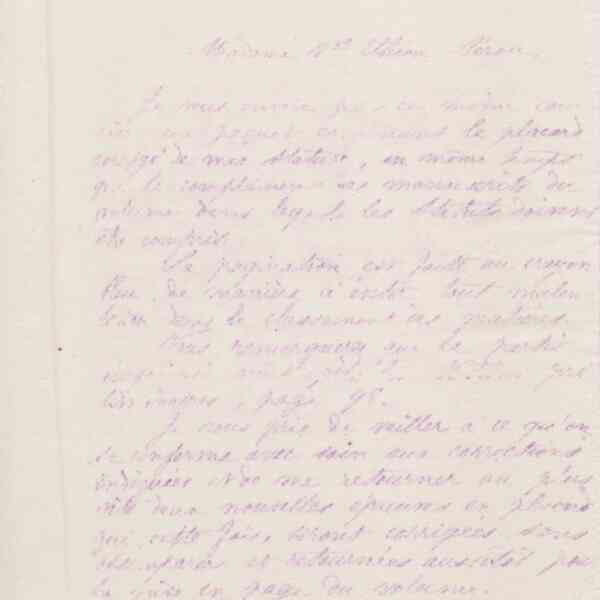 Madame Vve Etienne Péron,
Je vous envoie par ce même cour
rier un paquet contenant le placard
corrigé de mes Statuts, en même temps
que le complément des manuscrits du
volume dans lequel les Statuts doivent
être compris.
La pagination est faite au crayon
bleu, de manière à éviter tout malen
tendu dans le classement des matières.
Vous remarquerez que la partie
imprimée pré
liminaires, page 98.
Je vous prie de veiller à ce qu'on
se conforme avec soin aux corrections
indiquées et de me retourner au plus
vite deux nouvelles épreuves en placard
qui cette fois, seront corrigées sans
désemparer et retournées aussitôt pour
la mise en page du volume.